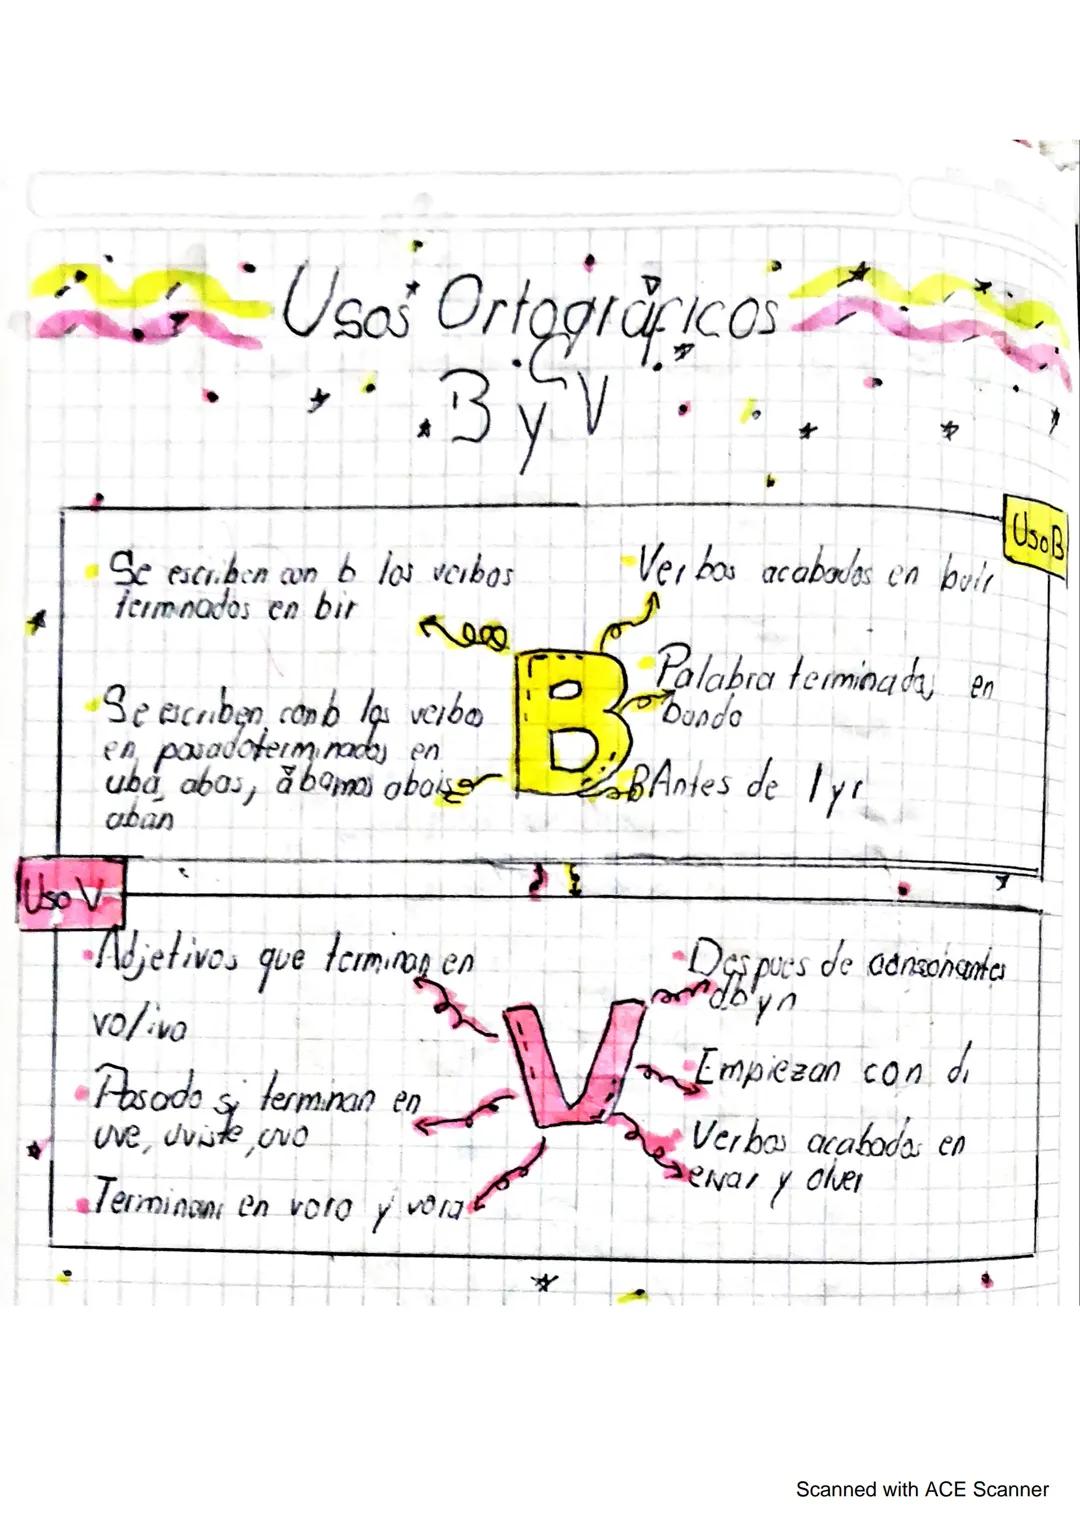 Usos Ortográficos
B y V
Uso B
Se escriben con b los verbos
terminados en bir
Verbos acabados en buir
Se escriben con b los verbos
en pasado terminados en
aba, abas, ábamos abais
aban
Palabra terminadas en
bundo
B Antes de l y r
Uso V
Adjetivos que terminan en
vo/ivo
Pasado si terminan en
uve, uviste, uvo
Terminan en voro y vora
Despues de consonantes
d b y n
Empiezan con di
Verbos acabados en
ervar y olver
Scanned with ACE Scanner